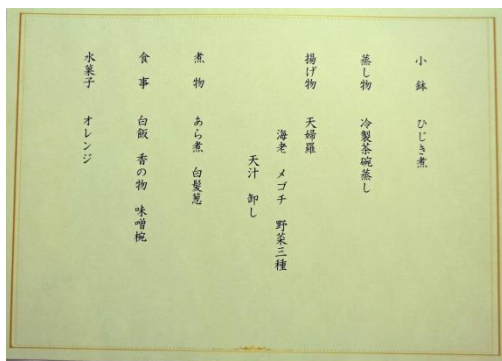 小鉢　ひじき煮
蒸し物　冷製茶碗蒸し
揚げ物　天婦羅
海老　メゴチ　野菜三種
天汁　卸し
煮物　あら煮　白髪葱
食事　白飯　香の物　味噌椀
水菓子　オレンジ